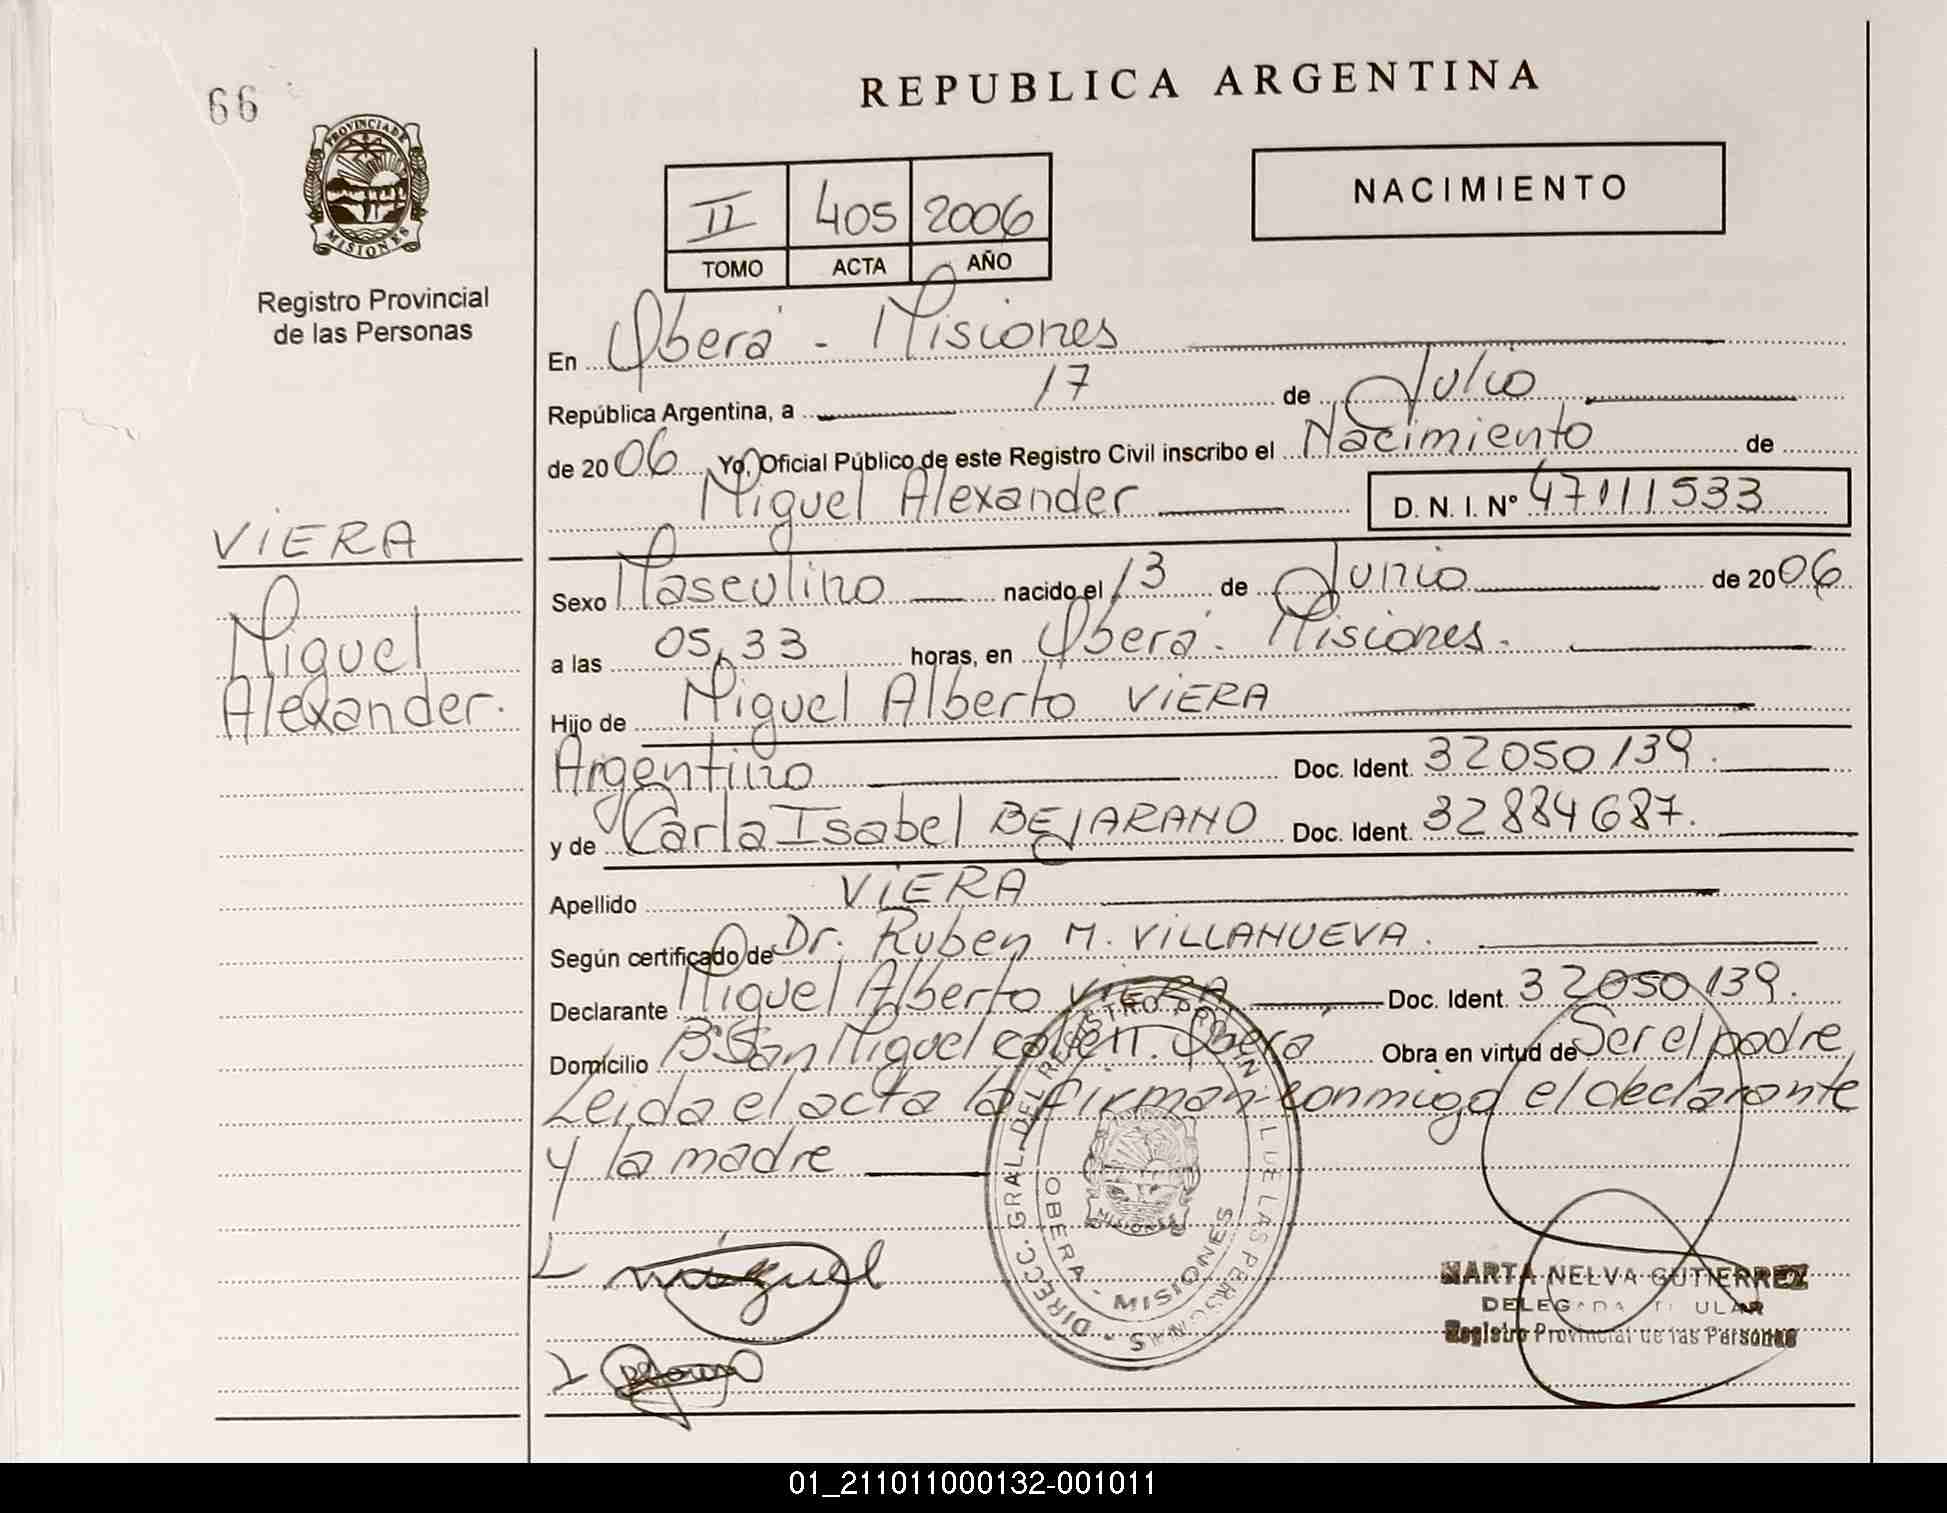 66
REPUBLICA ARGENTINA
PROVINCIA DE MISIONES
Registro Provincial
de las Personas
II 405 2006
TOMO ACTA AÑO
NACIMIENTO
En Oberá - Misiones
República Argentina, a 17 de Julio
de 2006 Yo, Oficial Público de este Registro Civil inscribo el Nacimiento de
Miguel Alexander D. N. I. Nº 47111533
VIERA
Miguel
Alexander.
Sexo Masculino nacido el 13 de Junio de 2006
a las 05,33 horas, en Oberá - Misiones.
Hijo de Miguel Alberto VIERA
Argentino Doc. Ident. 32050139.
y de Carla Isabel BEJARANO Doc. Ident. 32884687.
Apellido VIERA
Según certificado de Dr. Ruben M. VILLANUEVA.
Declarante Miguel Alberto VIERA Doc. Ident. 32050139.
Domicilio Bº San Miguel calle 11. Oberá Obra en virtud de Ser el padre
Leida el acta la firman conmigo el declarante
y la madre
DIRECC. GRAL. DEL REGISTRO PROVINCIAL DE LAS PERSONAS
OBERA - MISIONES
miguel
MARTA NELVA GUTIERREZ
DELEGADA TITULAR
Registro Provincial de las Personas
01_211011000132-001011